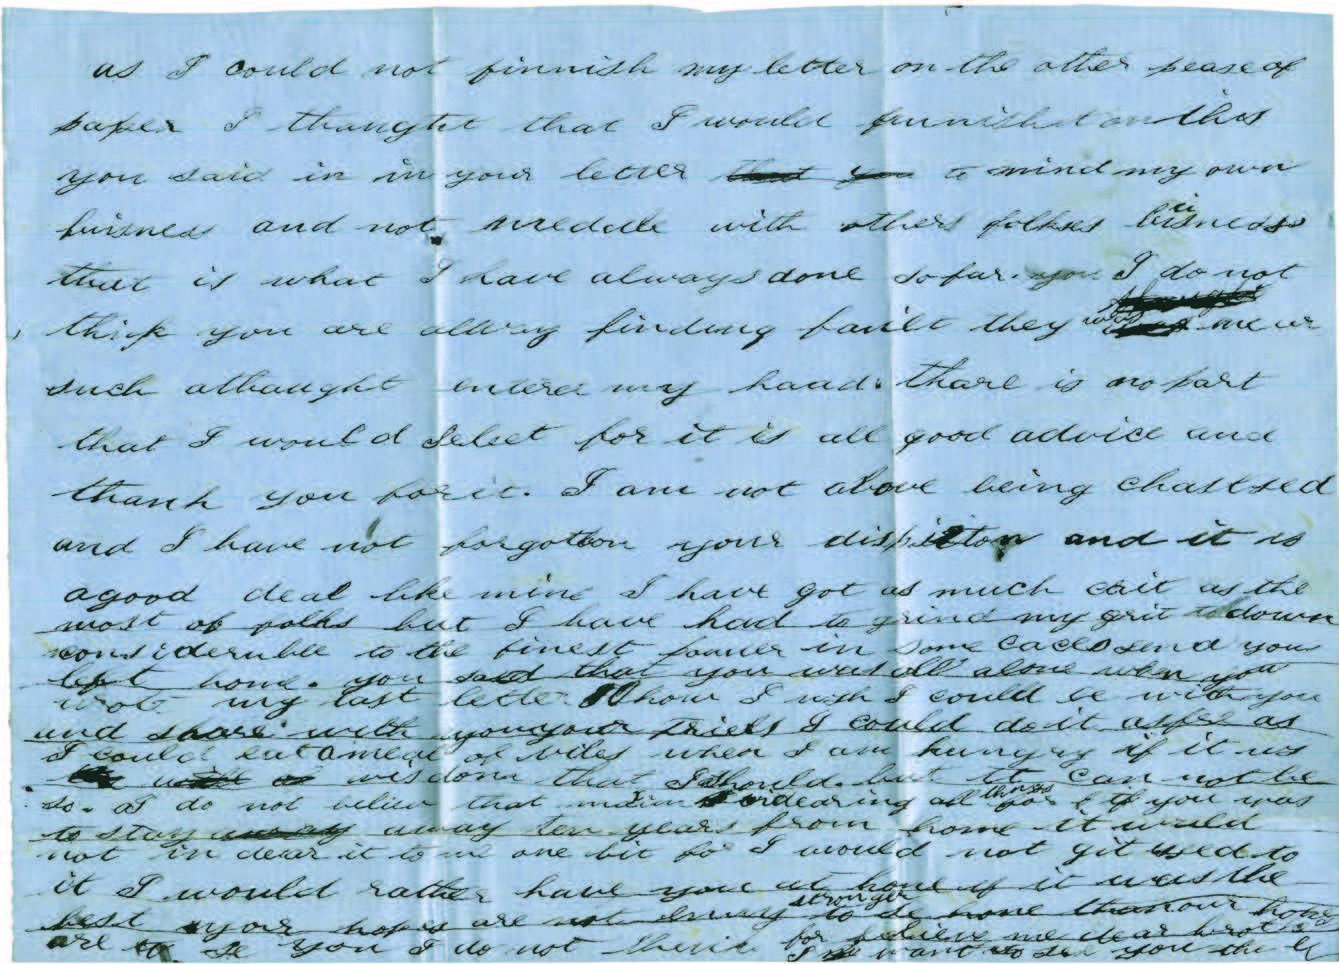 as I could not finnish my letter on the other pease of
paper I thaught that I would finnish it on this
you said in in your letter that you to mind my own
buisness and not meddle with others folkes bisness
that is what I have always done so far. you I do not
think you are allway finding fault they never
such athaught enterer my haad. thare is no part
that I would select for it is all good advice and
thank you for it. I am not above being chastsed
and I have not forgotton your disposition and it is
agood deal like mine I have got as much as the
most of folks but I have had to grind my grit down
considerable to the finest powder in some caces send you
left home. you said that you was all alone when you
wrot my last letter how I wish I could be with you
and share with you your triels I could do it as free as
I could eat a meal of vitels when I am hungry if it was
wisdom that I should but it can not be
so. I do not beliea that endearing all things for if you was
to stay away away ten years from home it would
not in dear it to me one bit for I would not git used to
it I would rather have you at home if it was the
best your hopes are not enny stronger to be home than our hopes
are to se you I do not for believe me dear brother
I want to see you the